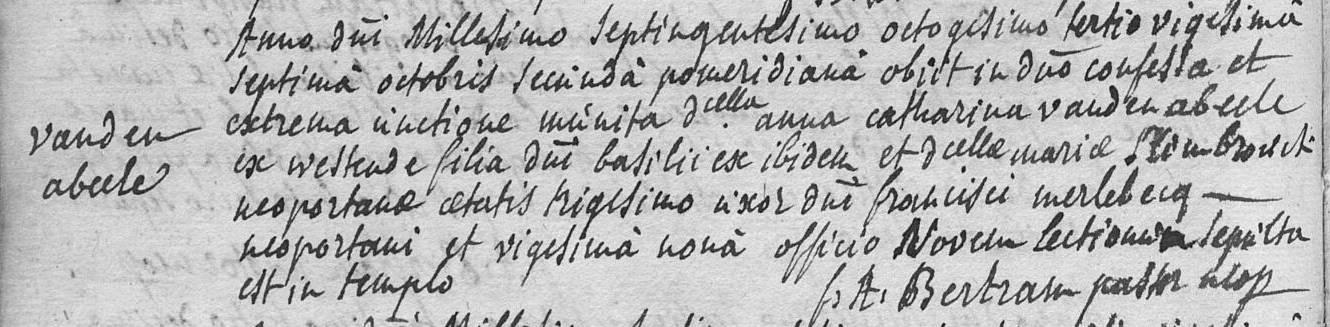 Anno dni Millesimo Septingentesimo octogesimo tertio vigesimâ
septimâ octobris secundâ pomeridianâ obiit in dno confessa et
vanden
extrema unctione munita dcella anna catharina vanden abeele
abeele
ex westende filia dni basilii ex ibidem et dcellæ mariæ
neoportanæ ætatis trigesimo uxor dni francisci merlebecq
neoportani et vigesimâ nonâ officio Novem lectionum sepulta
est in templo
f: A: Bertram pastor neop